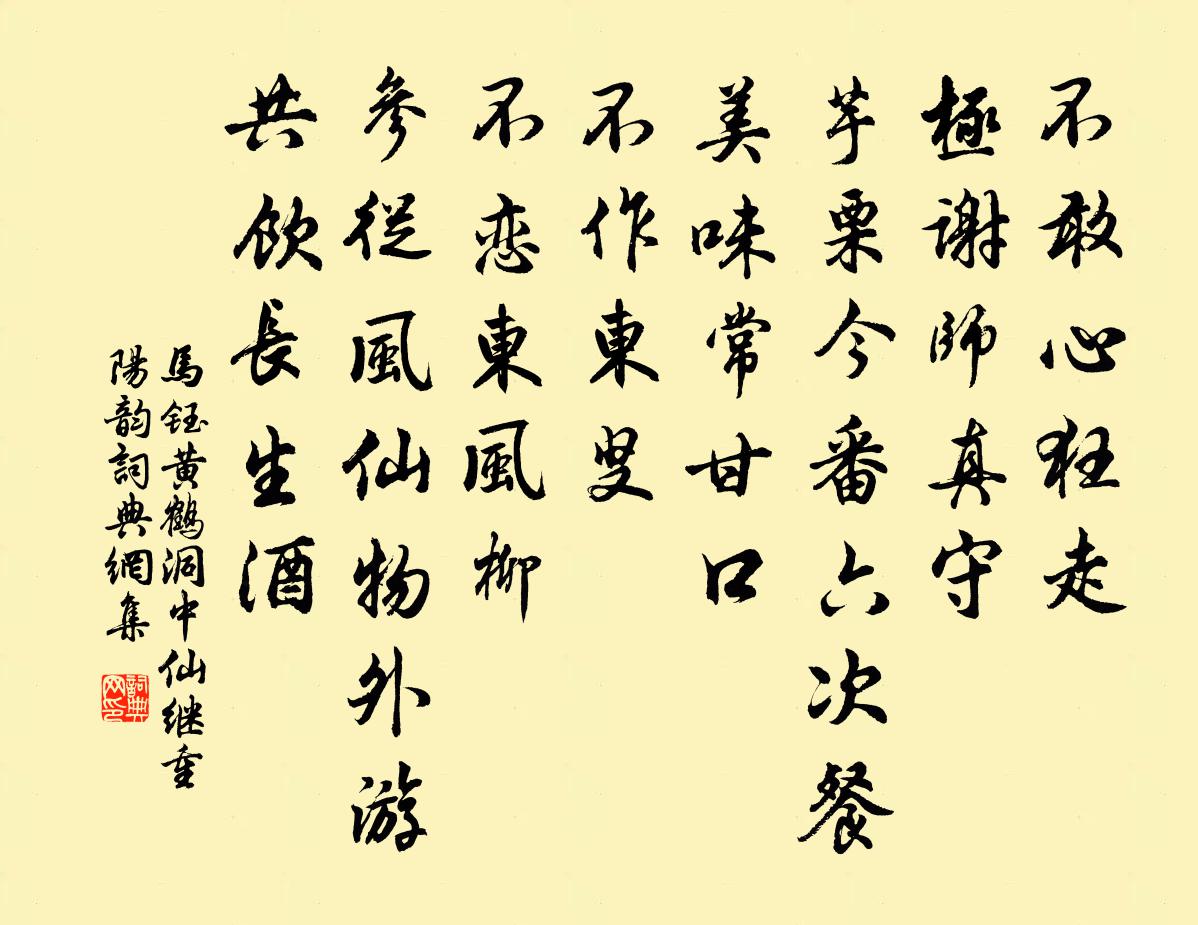 不敢心狂走
極謝師真守
芋栗今番六次餐
美味常甘口
不作東叟
不恋東風柳
參從風仙物外游
共飲長生酒
馬鈺黄鶴洞中仙继重
陽韵詞典網集
詞典
网印